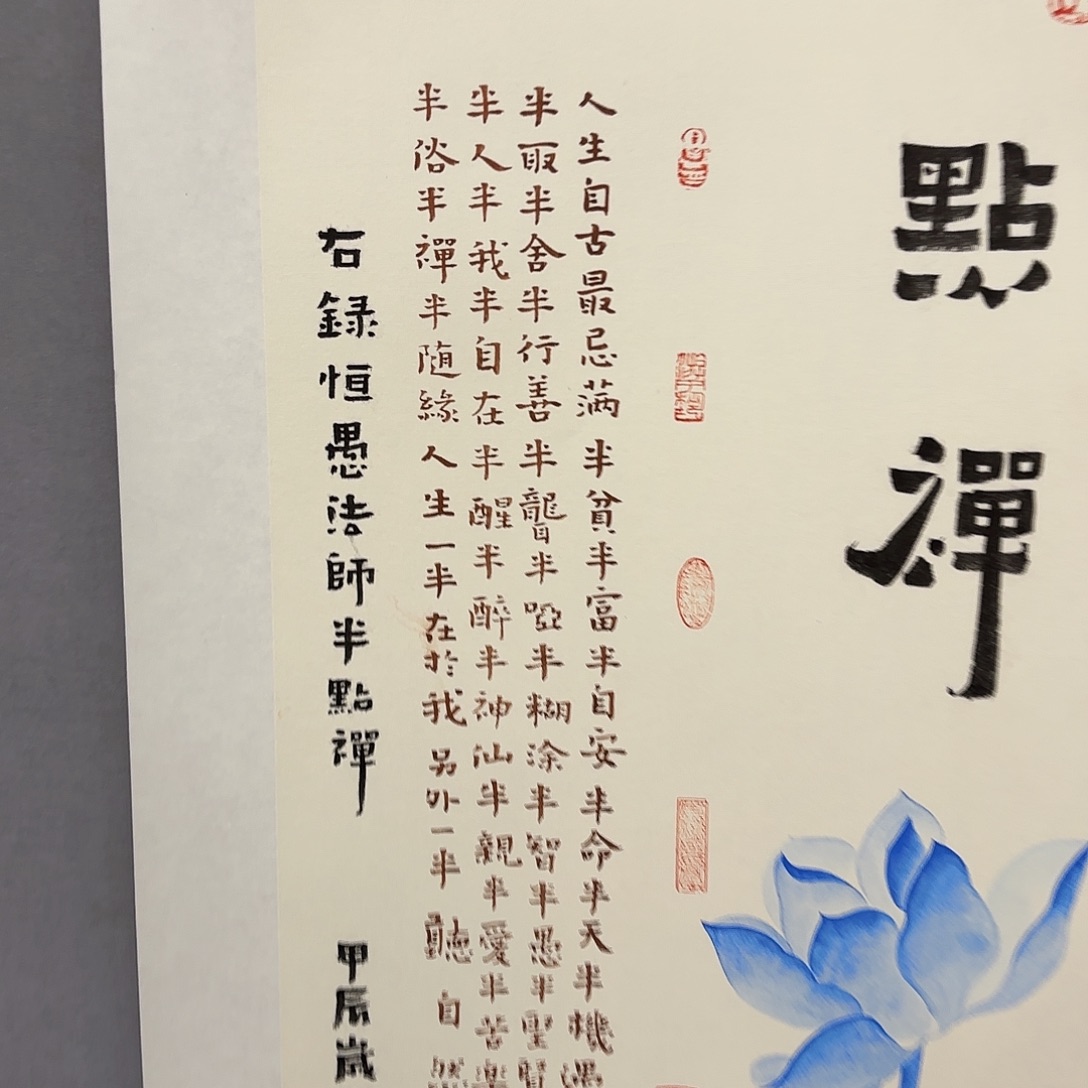 點禪
人生自古最忌满半貧半富半自安半命半天半機遇
半取半舍半行善半聾半啞半糊涂半智半愚半聖賢
半人半我半自在半醒半醉半神仙半親半愛半苦樂
半俗半禪半随緣人生一半在於我另外一半聽自然
右録恒愚法師半點禪
甲辰歲